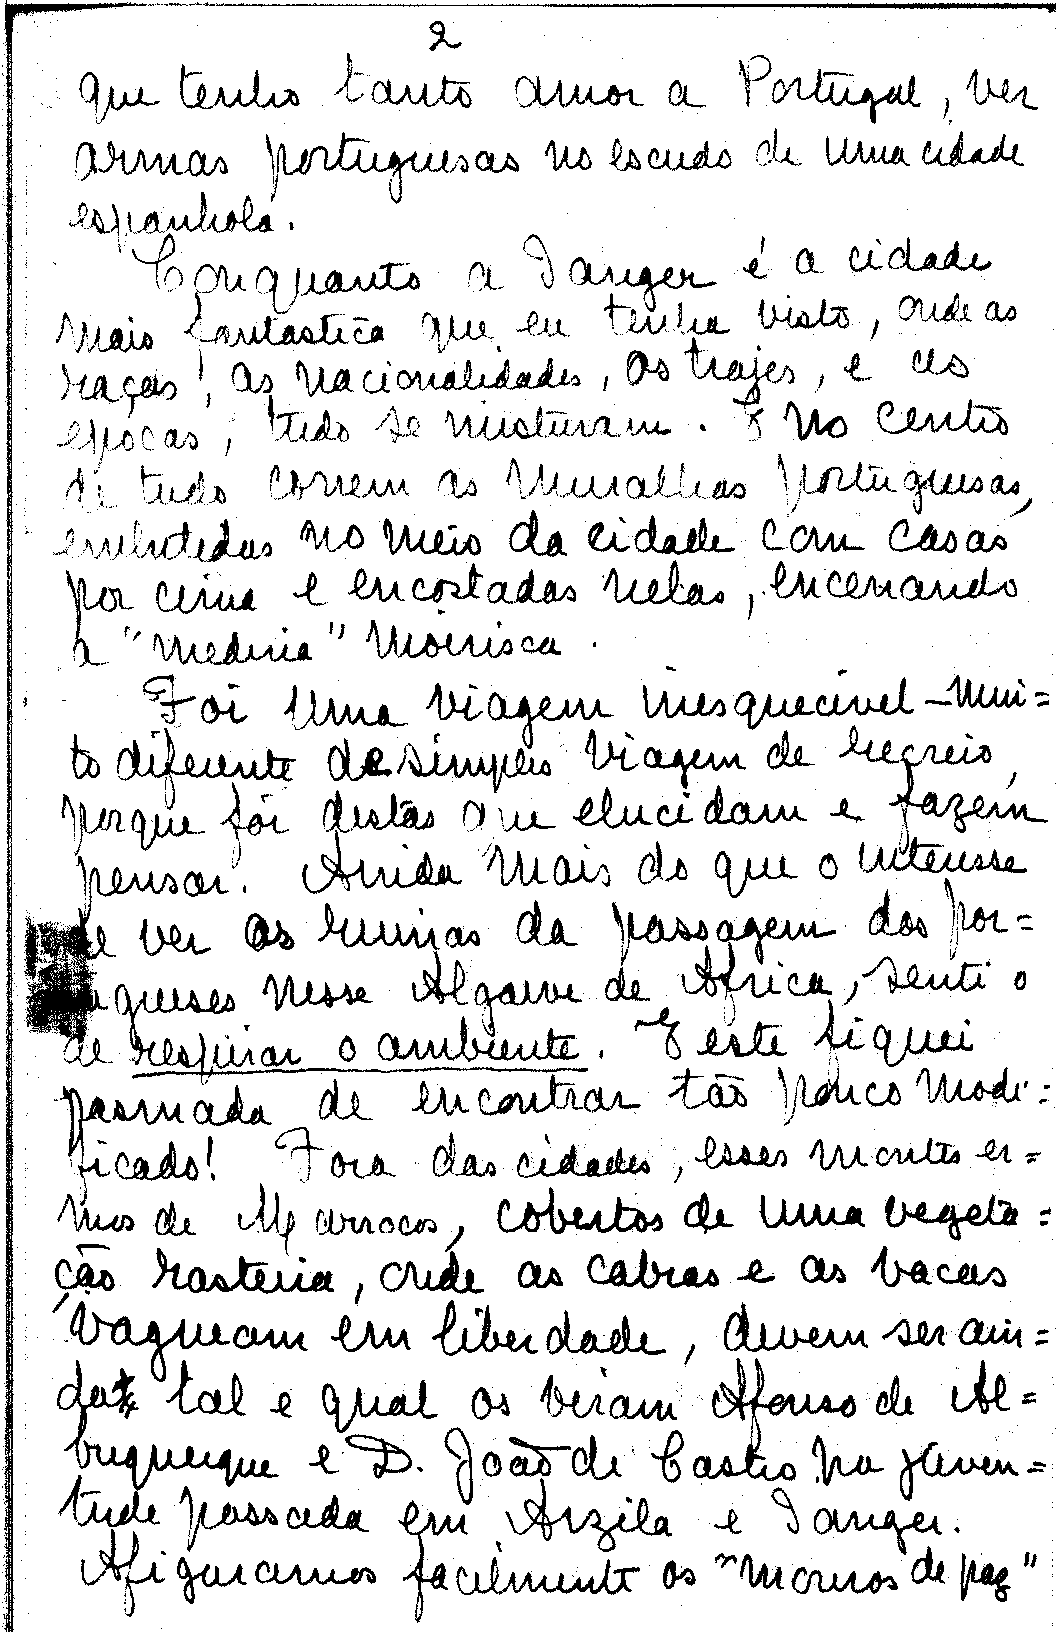 2
que tenho tanto amor a Portugal, ver
armas portuguesas no escudo de uma cidade
espanhola.
Conquanto a Tanger é a cidade
mais fantastica que eu tenha visto, onde as
raças, as nacionalidades, os trajes, e as
epocas, tudo se misturam. E no centro
de tudo correm as muralhas portuguesas,
embutidas no meio da cidade com casas
por cima e encostadas nelas, encerrando
a "medina" moirisca.
Foi uma viagem inesquecivel – mui=
to diferente de simples viagem de recreio,
porque foi destas que elucidam e fazem
pensar. Ainda mais do que o interesse
de ver as ruinas da passagem dos por=
ugueses nesse Algarve de Africa, senti o
de respirar o ambiente. E este fiquei
pasmada de encontrar tão pouco modi=
ficado! Fora das cidades, esses montes er=
mos de Marrocos, cobertos de uma vegeta=
ção rasteira, onde as cabras e as vacas
vagueam em liberdade, devem ser ain=
da tal e qual os viram Afonso de Al=
buquerque e D. João de Castro na juven=
tude passada em Arzila e Tanger.
Afiguramos facilmente os "mouros de paz"